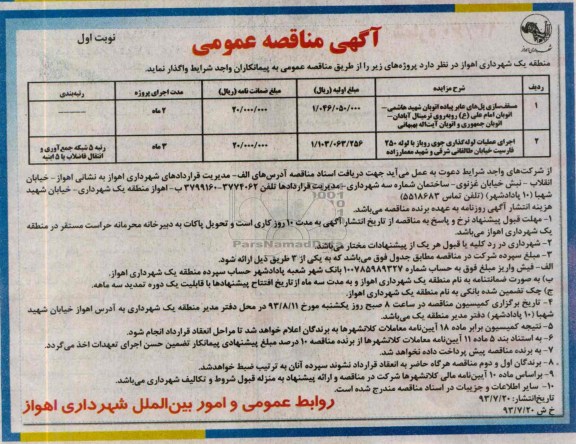 آگهی مناقصه عمومی
نوبت اول
شهرداری اهواز
منطقه یک شهرداری اهواز در نظر دارد پروژه‌های زیر را از طریق مناقصه عمومی به پیمانکاران واجد شرایط واگذار نماید.
ردیف شرح مزایده مبلغ اولیه (ریال) مبلغ ضمانت نامه (ریال) مدت اجرای پروژه رتبه‌بندی
۱ مسقف‌سازی پل‌های عابر پیاده اتوبان شهید هاشمی- اتوبان امام علی (ع) روبه‌روی ترمینال آبادان- اتوبان جمهوری و اتوبان آیت‌اله بهبهانی ۱/۰۴۶/۰۵۰/۰۰۰ ۲۰/۰۰۰/۰۰۰ ۲ ماه
۲ اجرای عملیات لوله‌گذاری جوی روباز با لوله ۲۵۰ فارسیت خیابان طالقانی شرقی و شهید معمارزاده ۱/۱۰۳/۰۶۳/۲۵۶ ۲۰/۰۰۰/۰۰۰ ۳ ماه رتبه ۵ شبکه جمع‌آوری و انتقال فاضلاب یا ۵ ابنیه
از شرکت‌های واجد شرایط دعوت به عمل می آید جهت دریافت اسناد مناقصه آدرس‌های الف- مدیریت قراردادهای شهرداری اهواز به نشانی اهواز- خیابان
انقلاب - نبش خیابان غزنوی- ساختمان شماره سه شهرداری- مدیریت قراردادها تلفن ۳۷۷۴۰۶۲-۳۷۹۹۱۶۰ ب- اهواز منطقه یک شهرداری- خیابان شهید
شهبا (۱۰ پادادشهر) (تلفن تماس ۵۵۱۸۶۸۳)
هزینه انتشار آگهی روزنامه به عهده برنده مناقصه می‌باشد.
۱- مهلت قبول پیشنهاد نرخ و پاسخ به مناقصه از تاریخ انتشار آگهی به مدت ۱۰ روز کاری است و تحویل پاکات به دبیرخانه محرمانه حراست مستقر در منطقه
یک شهرداری اهواز می‌باشد.
۲- شهرداری در رد کلیه یا قبول هر یک از پیشنهادات مختار می‌باشد.
۳- مبلغ سپرده شرکت در مناقصه مطابق جدول فوق می‌باشد که به یکی از ۳ طریق ذیل ارائه شود.
الف- فیش واریز مبلغ فوق به حساب شماره ۱۰۰۷۸۵۹۸۹۳۲۷ بانک شهر شعبه پادادشهر حساب سپرده منطقه یک شهرداری اهواز.
ب) به صورت ضمانتنامه به نام منطقه یک شهرداری اهواز و به مدت سه ماه از تاریخ افتتاح پیشنهادها با قابلیت یک دوره تمدید سه ماهه.
ج) چک تضمین شده بانکی به نام منطقه یک شهرداری اهواز.
۴- تاریخ برگزاری کمیسیون مناقصه در ساعت ۸ صبح روز یکشنبه مورخ ۹۳/۸/۱۱ در محل دفتر مدیر منطقه یک شهرداری به آدرس اهواز خیابان شهید
شهبا (۱۰ پادادشهر) دفتر مدیر منطقه یک می‌باشد.
۵- نتیجه کمیسیون برابر ماده ۱۸ آیین‌نامه معاملات کلانشهرها به برندگان اعلام خواهد شد تا مراحل انعقاد قرارداد انجام شود.
۶- به استناد بند ۵ ماده ۱۱ آیین‌نامه معاملات کلانشهرها از برنده مناقصه ۱۰ درصد مبلغ پیشنهادی پیمانکار تضمین حسن اجرای تعهدات اخذ می‌گردد.
۷- به برنده مناقصه پیش پرداخت داده نخواهد شد.
۸- برندگان اول و دوم مناقصه هرگاه حاضر به انعقاد قرارداد نشوند سپرده آنان به ترتیب ضبط خواهدشد.
۹- براساس ماده ۱۰ آیین‌نامه مالی کلانشهرها شرکت در مناقصه و ارائه پیشنهاد به منزله قبول شروط و تکالیف شهرداری می‌باشد.
۱۰- سایر اطلاعات و جزییات در اسناد مناقصه مندرج شده است.
تاریخ انتشار: ۹۳/۷/۲۰
خ ش ۹۳/۷/۲۰
روابط عمومی و امور بین‌الملل شهرداری اهواز